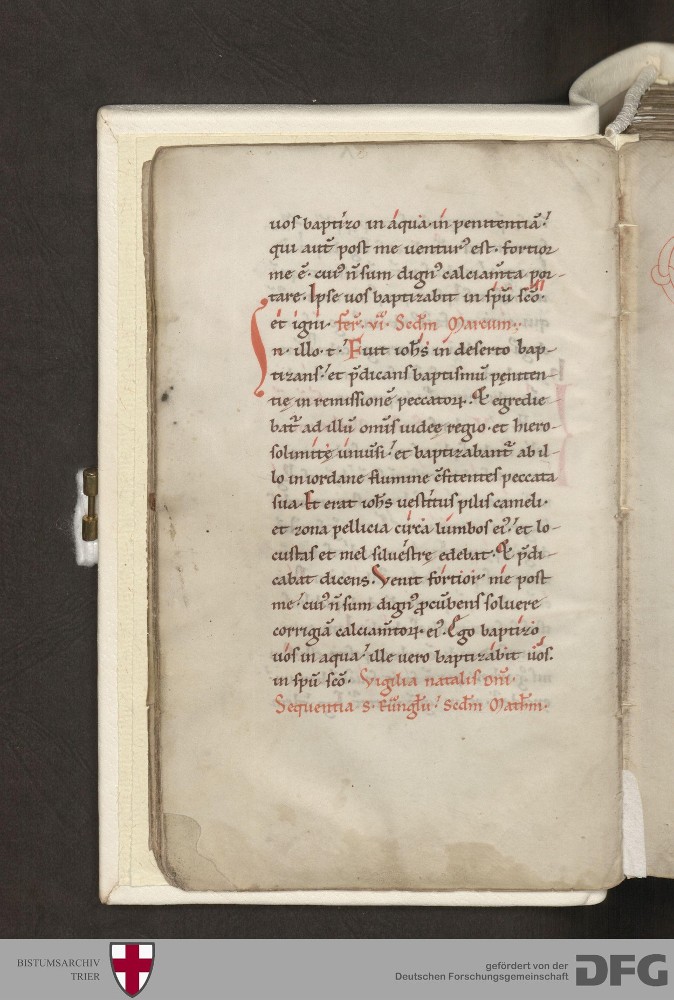 uos baptizo in aqua in penitentiā.
qui aut̄ post me uentur᾿ est. fortior
me ē. cui᾿ n̄ sum dign᾿ calciam̄ta por-
tare. Ipse uos baptizabit in sp̄u sc̄o.
et igni. fer̄. vi. Secdm̄ Marcum.
In. illo. t. Fuit ioh̄s in deserto bap-
tizans. et p̄dicans baptismū peniten-
tię in remissionē peccatoꝝ. Et egredie-
bat̄ ad illū om̄is iudeę regio. et hiero-
solimitę uniūsi. et baptizabant̄ ab il-
lo in iordane flumine c̄fitentes peccata
sua. Et erat ioh̄s uestitus pilis cameli.
et zona pellicia circa lumbos ei᾿. et lo-
custas et mel siluestrę edebat. Et p̄di-
cabat dicens. Venit fortior me post
me. cui᾿ n̄ sum dign᾿ ꝓcūbens soluere
corrigiā calciam̄toꝝ. ei᾿. Ego baptizo
uos in aqua. ille uero baptizabit uos.
in sp̄u sc̄o. Vigilia natalis dn̄i.
Sequentia s. eūangl̄ii. Secdm̄ Math̄m.
BISTUMSARCHIV
TRIER
gefördert von der
Deutschen Forschungsgemeinschaft
DFG